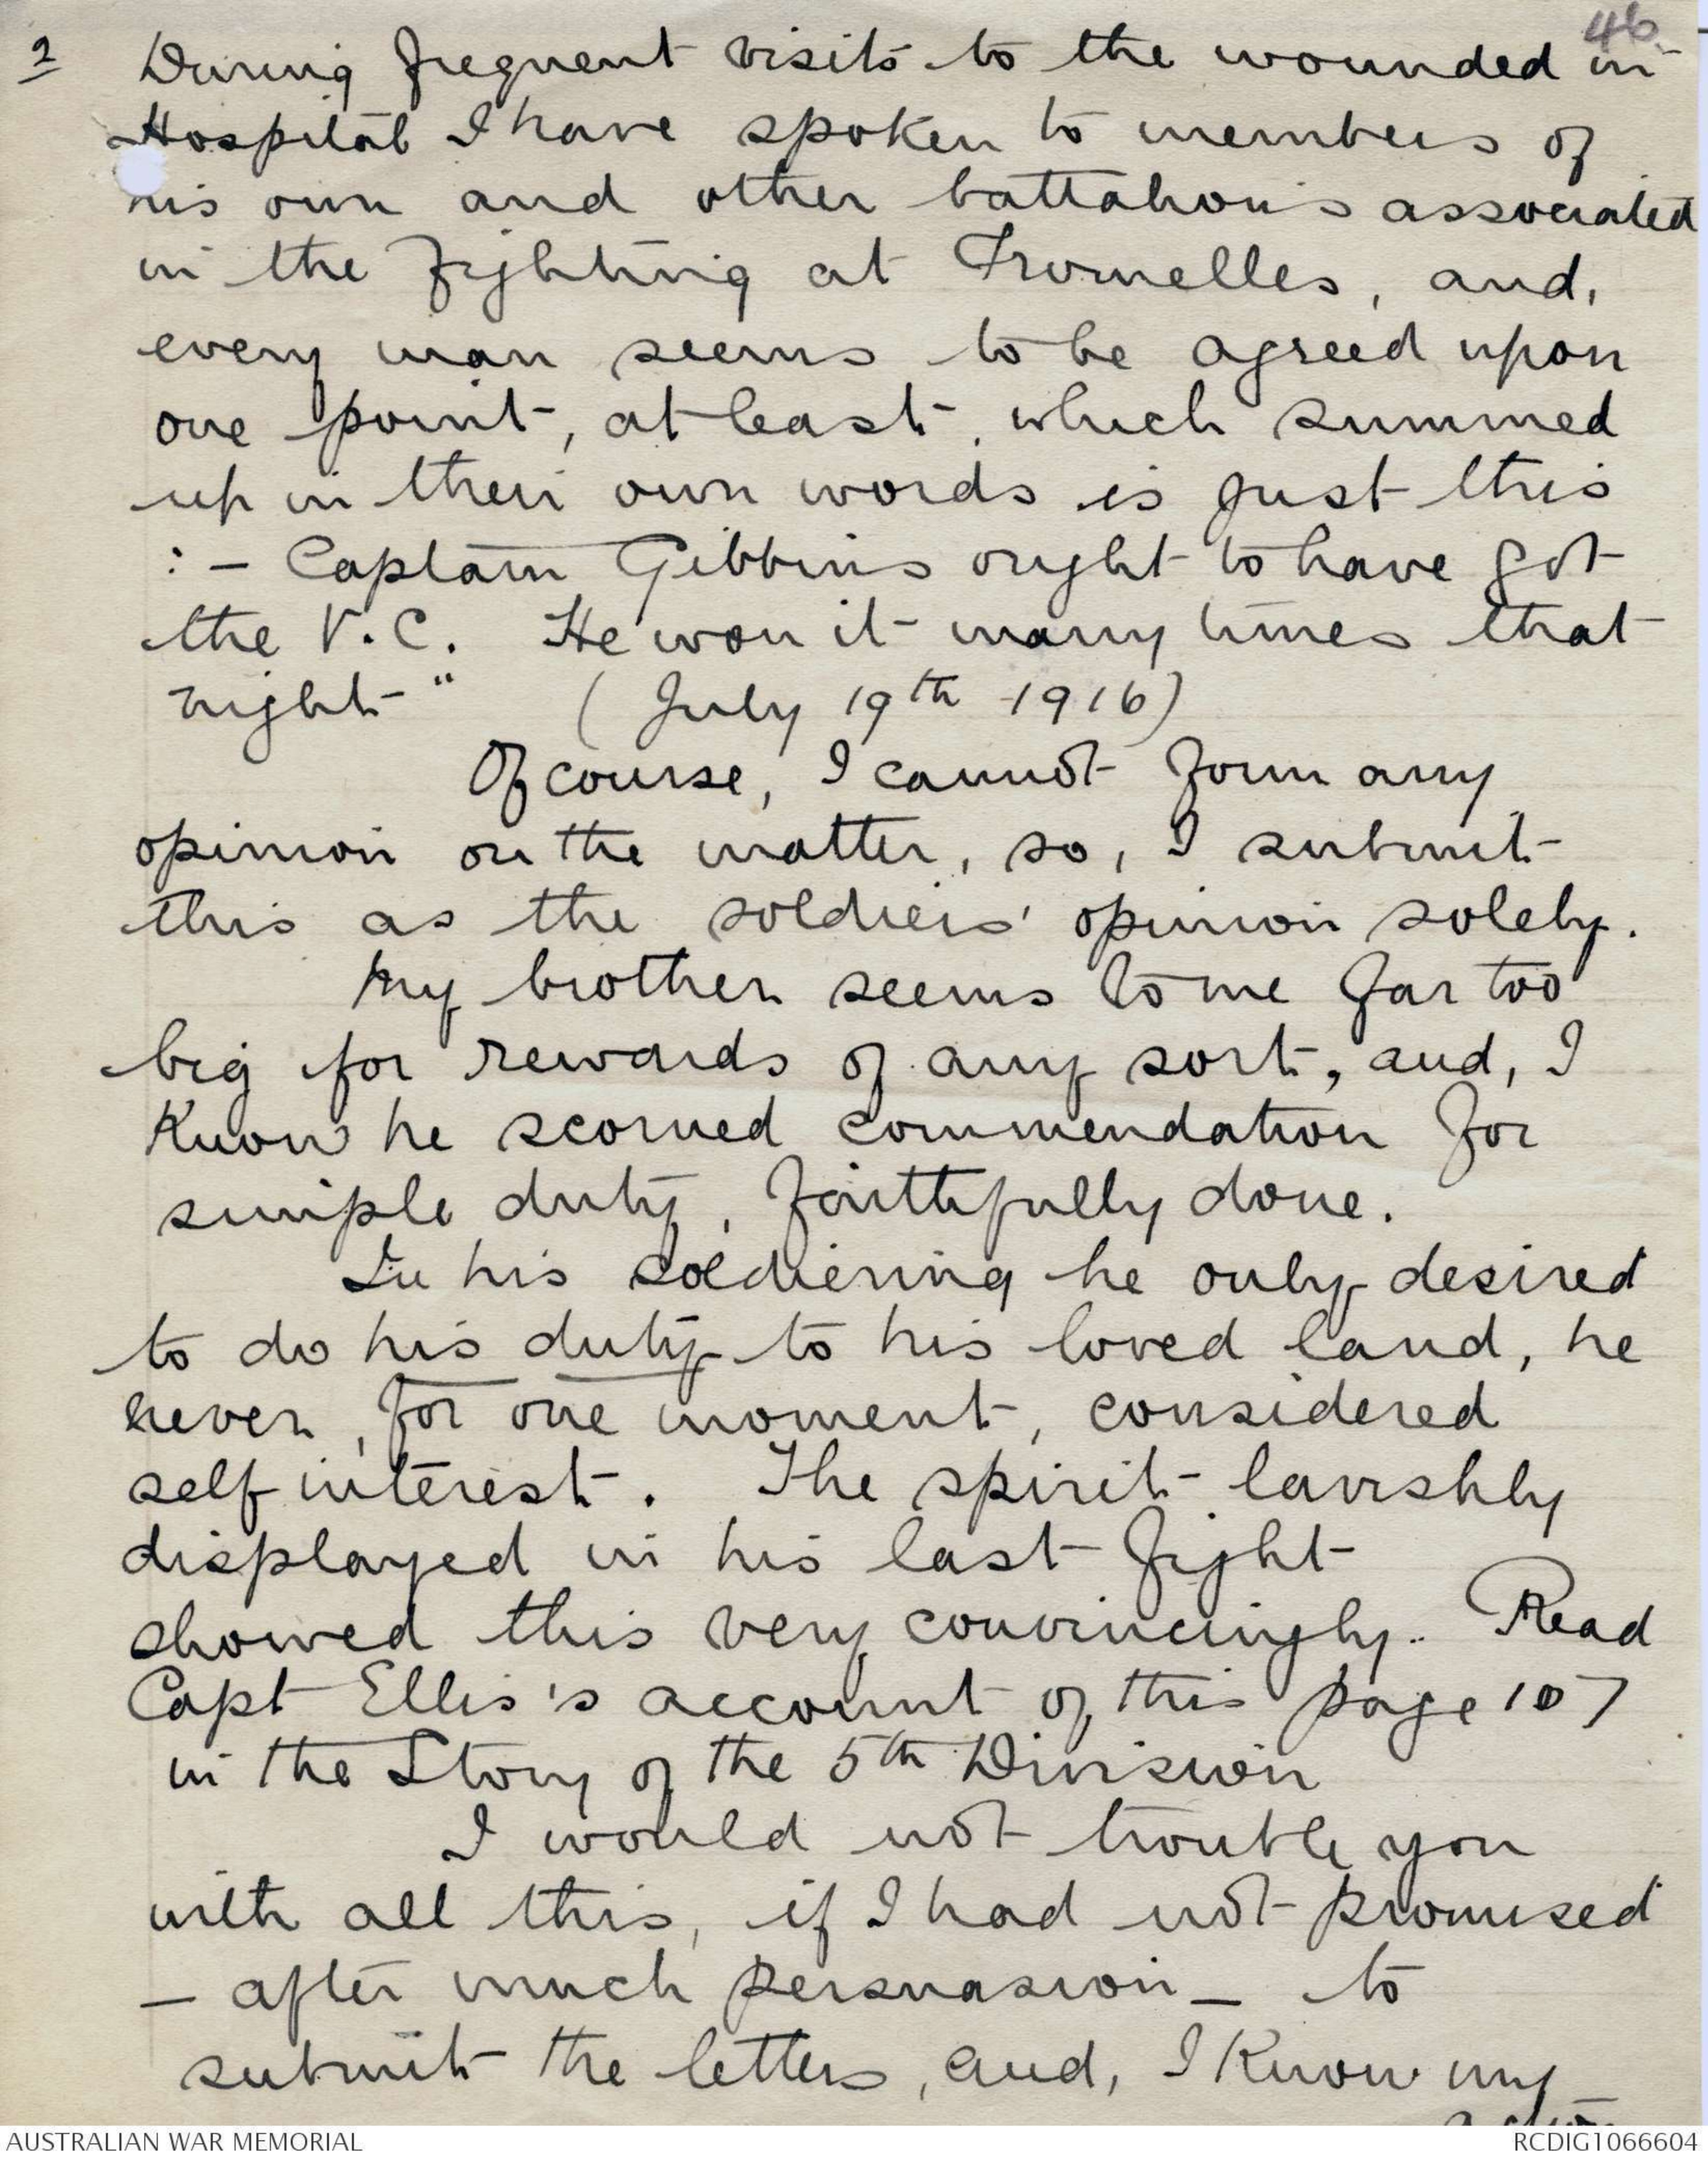 46.
2 During frequent visits to the wounded in
Hospital I have spoken to members of
his own and other battalions associated
in the fighting at Fromelles, and,
every man seems to be agreed upon
one point, at least, which summed
up in their own words is just this
:- Captain Gibbins ought to have got
the V.C. He won it many times that
night" (July 19th 1916)
Of course, I cannot form any
opinion on the matter, so, I submit
this as the soldiers' opinion solely.
My brother seems to me far too
big for rewards of any sort, and, I
know he scorned commendation for
simple duty, faithfully done.
In his soldiering he only desired
to do his duty to his loved land, he
never, for one moment, considered
self interest. The spirit lavishly
displayed in his last fight
showed this very convincingly.. Read
Capt Ellis's account of this page 107
in the Story of the 5th Division
I would not trouble you
with all this, if I had not promised
- after much persuasion - to
submit the letters, and, I know my
AUSTRALIAN WAR MEMORIAL
RCDIG1066604